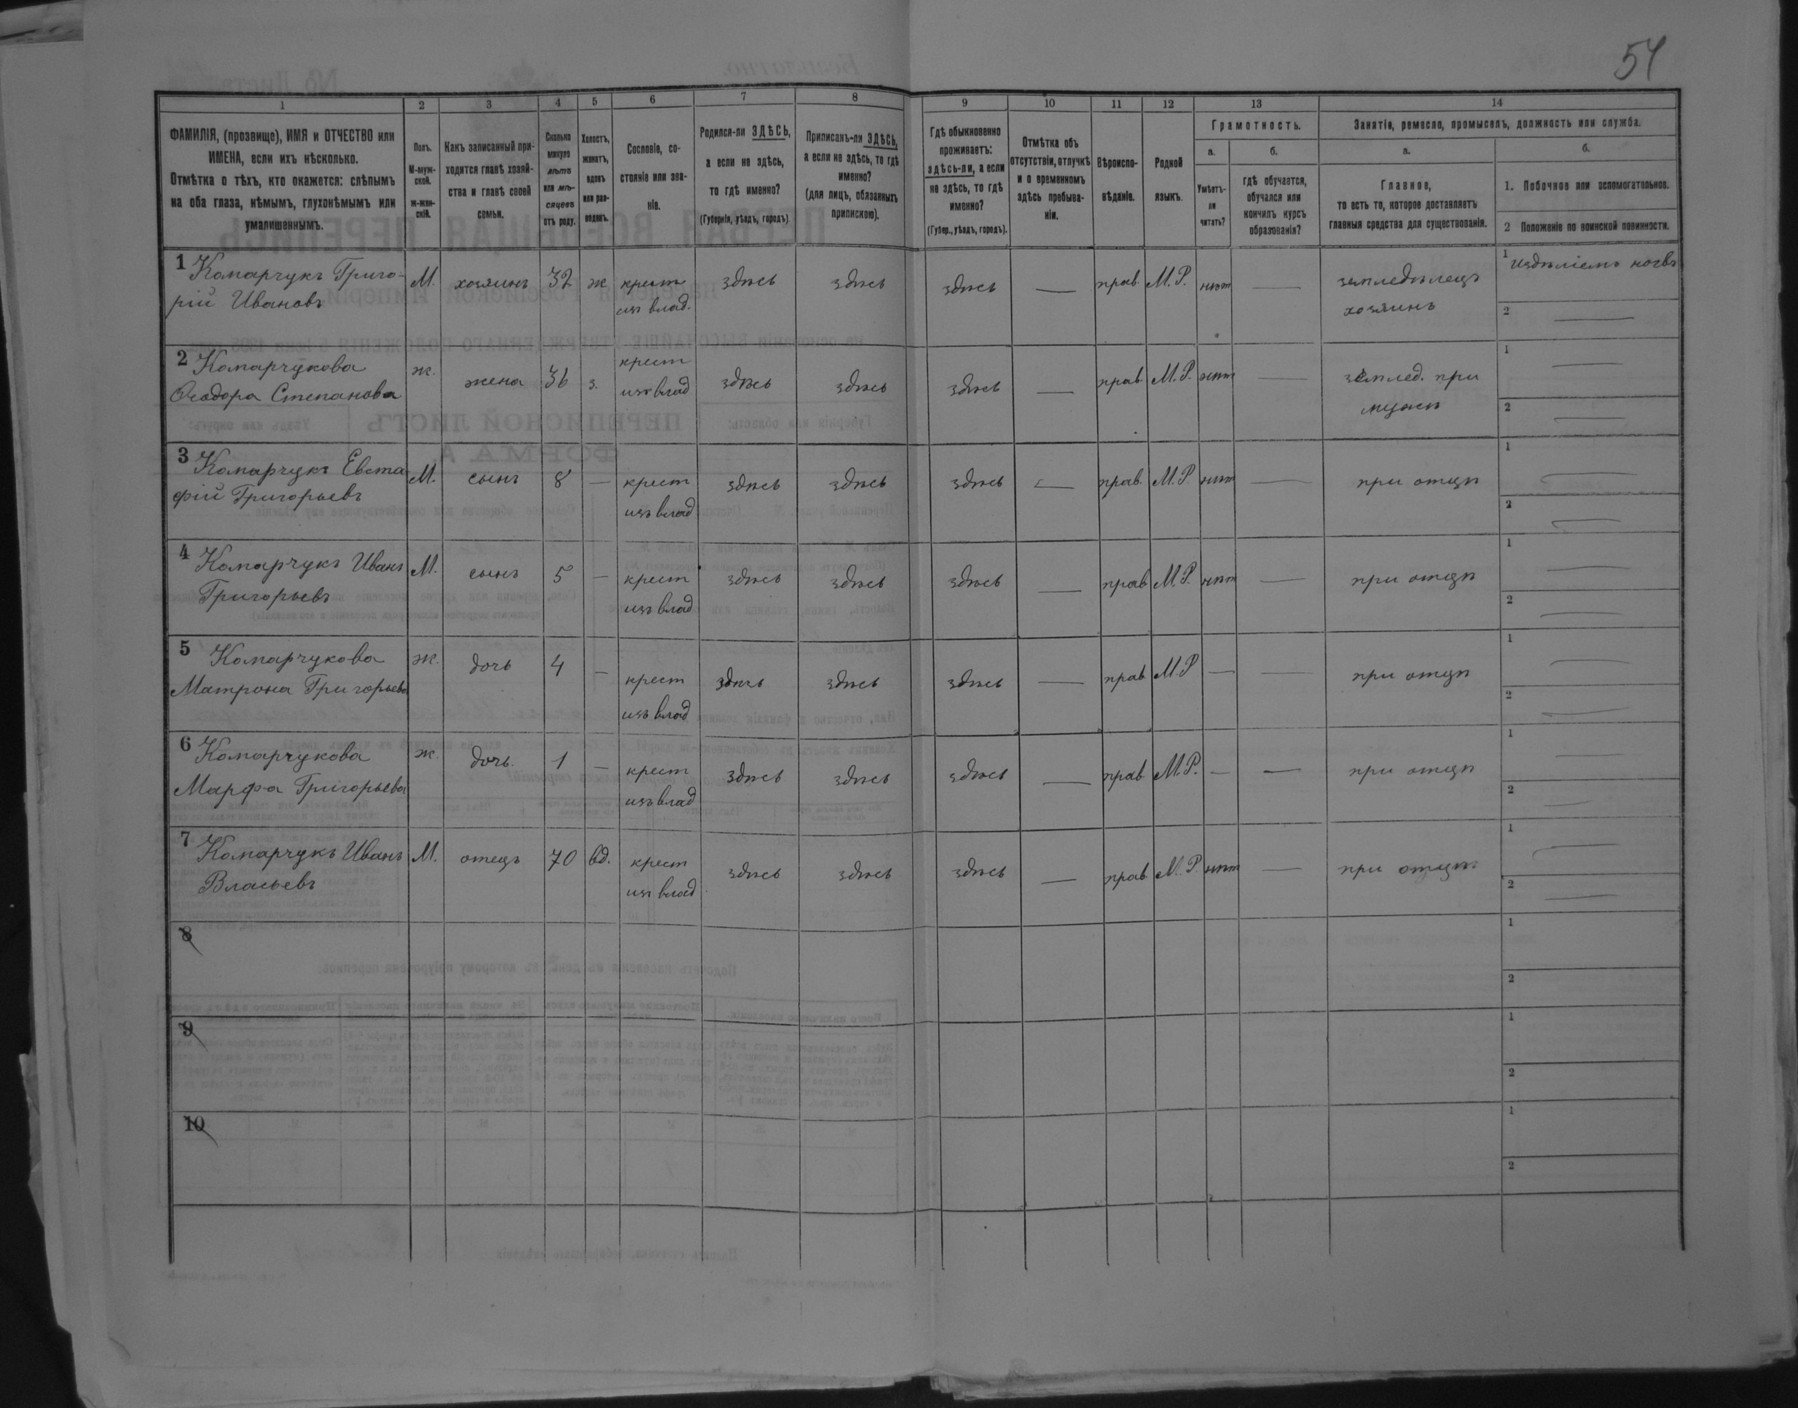 54
1 2 3 4 5 6 7 8 9 10 11 12 13 14
ФАМИЛІЯ, (прозвище), ИМЯ и ОТЧЕСТВО или
ИМЕНА, если ихъ нѣсколько.
Отмѣтка о тѣхъ, кто окажется: слѣпымъ
на оба глаза, нѣмымъ, глухонѣмымъ или
умалишеннымъ.
Полъ.
М-муж-
ской.
ж-жен-
скій.
Какъ записанный при-
ходится главѣ хозяй-
ства и главѣ своей
семьи.
Сколько
минуло
лѣтъ
или мѣ-
сяцевъ
отъ роду.
Холостъ,
женатъ,
вдовъ
или раз-
веденъ.
Сословіе, со-
стояніе или зва-
ніе.
Родился-ли ЗДѢСЬ,
а если не здѣсь,
то гдѣ именно?
(Губернія, уѣздъ, городъ).
Приписанъ-ли ЗДѢСЬ,
а если не здѣсь, то гдѣ
именно?
(для лицъ, обязанныхъ
припискою).
Гдѣ обыкновенно
проживаетъ:
здѣсь-ли, а если
не здѣсь, то гдѣ
именно?
(Губер., уѣздъ, городъ).
Отмѣтка объ
отсутствіи, отлучкѣ
и о временномъ
здѣсь пребыва-
ніи.
Вѣроиспо-
вѣданіе.
Родной
языкъ.
Грамотность.
а.
Умѣетъ-
ли
читать?
б.
гдѣ обучается,
обучался или
кончилъ курсъ
образованія?
Занятіе, ремесло, промыселъ, должность или служба.
а.
Главное,
то есть то, которое доставляетъ
главныя средства для существованія.
б.
1. Побочное или вспомогательное.
2 Положеніе по воинской повинности.
1 Комарчукъ Григо- М. хозяинъ 32 ж крест здѣсь здѣсь здѣсь — прав М.Р. нѣт — земледѣлецъ 1
рій Ивановъ изъ влад. хозяинъ 2 —
2 Комарчукова ж. жена 36 з. крест здѣсь здѣсь здѣсь — прав М.Р. нѣт — землед. при 1 —
Феодора Степанова изъ влад мужѣ 2 —
3 Комарчукъ Евста М. сынъ 8 — крест здѣсь здѣсь здѣсь — прав М.Р нѣт — при отцѣ 1 —
фій Григорьевъ изъ влад 2 —
4 Комарчукъ Иванъ М. сынъ 5 — крест здѣсь здѣсь здѣсь — прав М.Р. нѣт — при отцѣ 1 —
Григорьевъ изъ влад 2 —
5 Комарчукова ж. дочь 4 — крест здѣсь здѣсь здѣсь — прав М.Р — — при отцѣ 1 —
Матрона Григорьева изъ влад 2 —
6 Комарчукова ж. дочь. 1 — крест здѣсь здѣсь здѣсь — прав М.Р. — — при отцѣ 1 —
Марфа Григорьева изъ влад 2 —
7 Комарчукъ Иванъ М. отецъ 70 вд. крест здѣсь здѣсь здѣсь — прав М.Р нѣт — при отцѣ 1 —
Власьевъ изъ влад 2 —
8 1
2
9 1
2
10 1
2